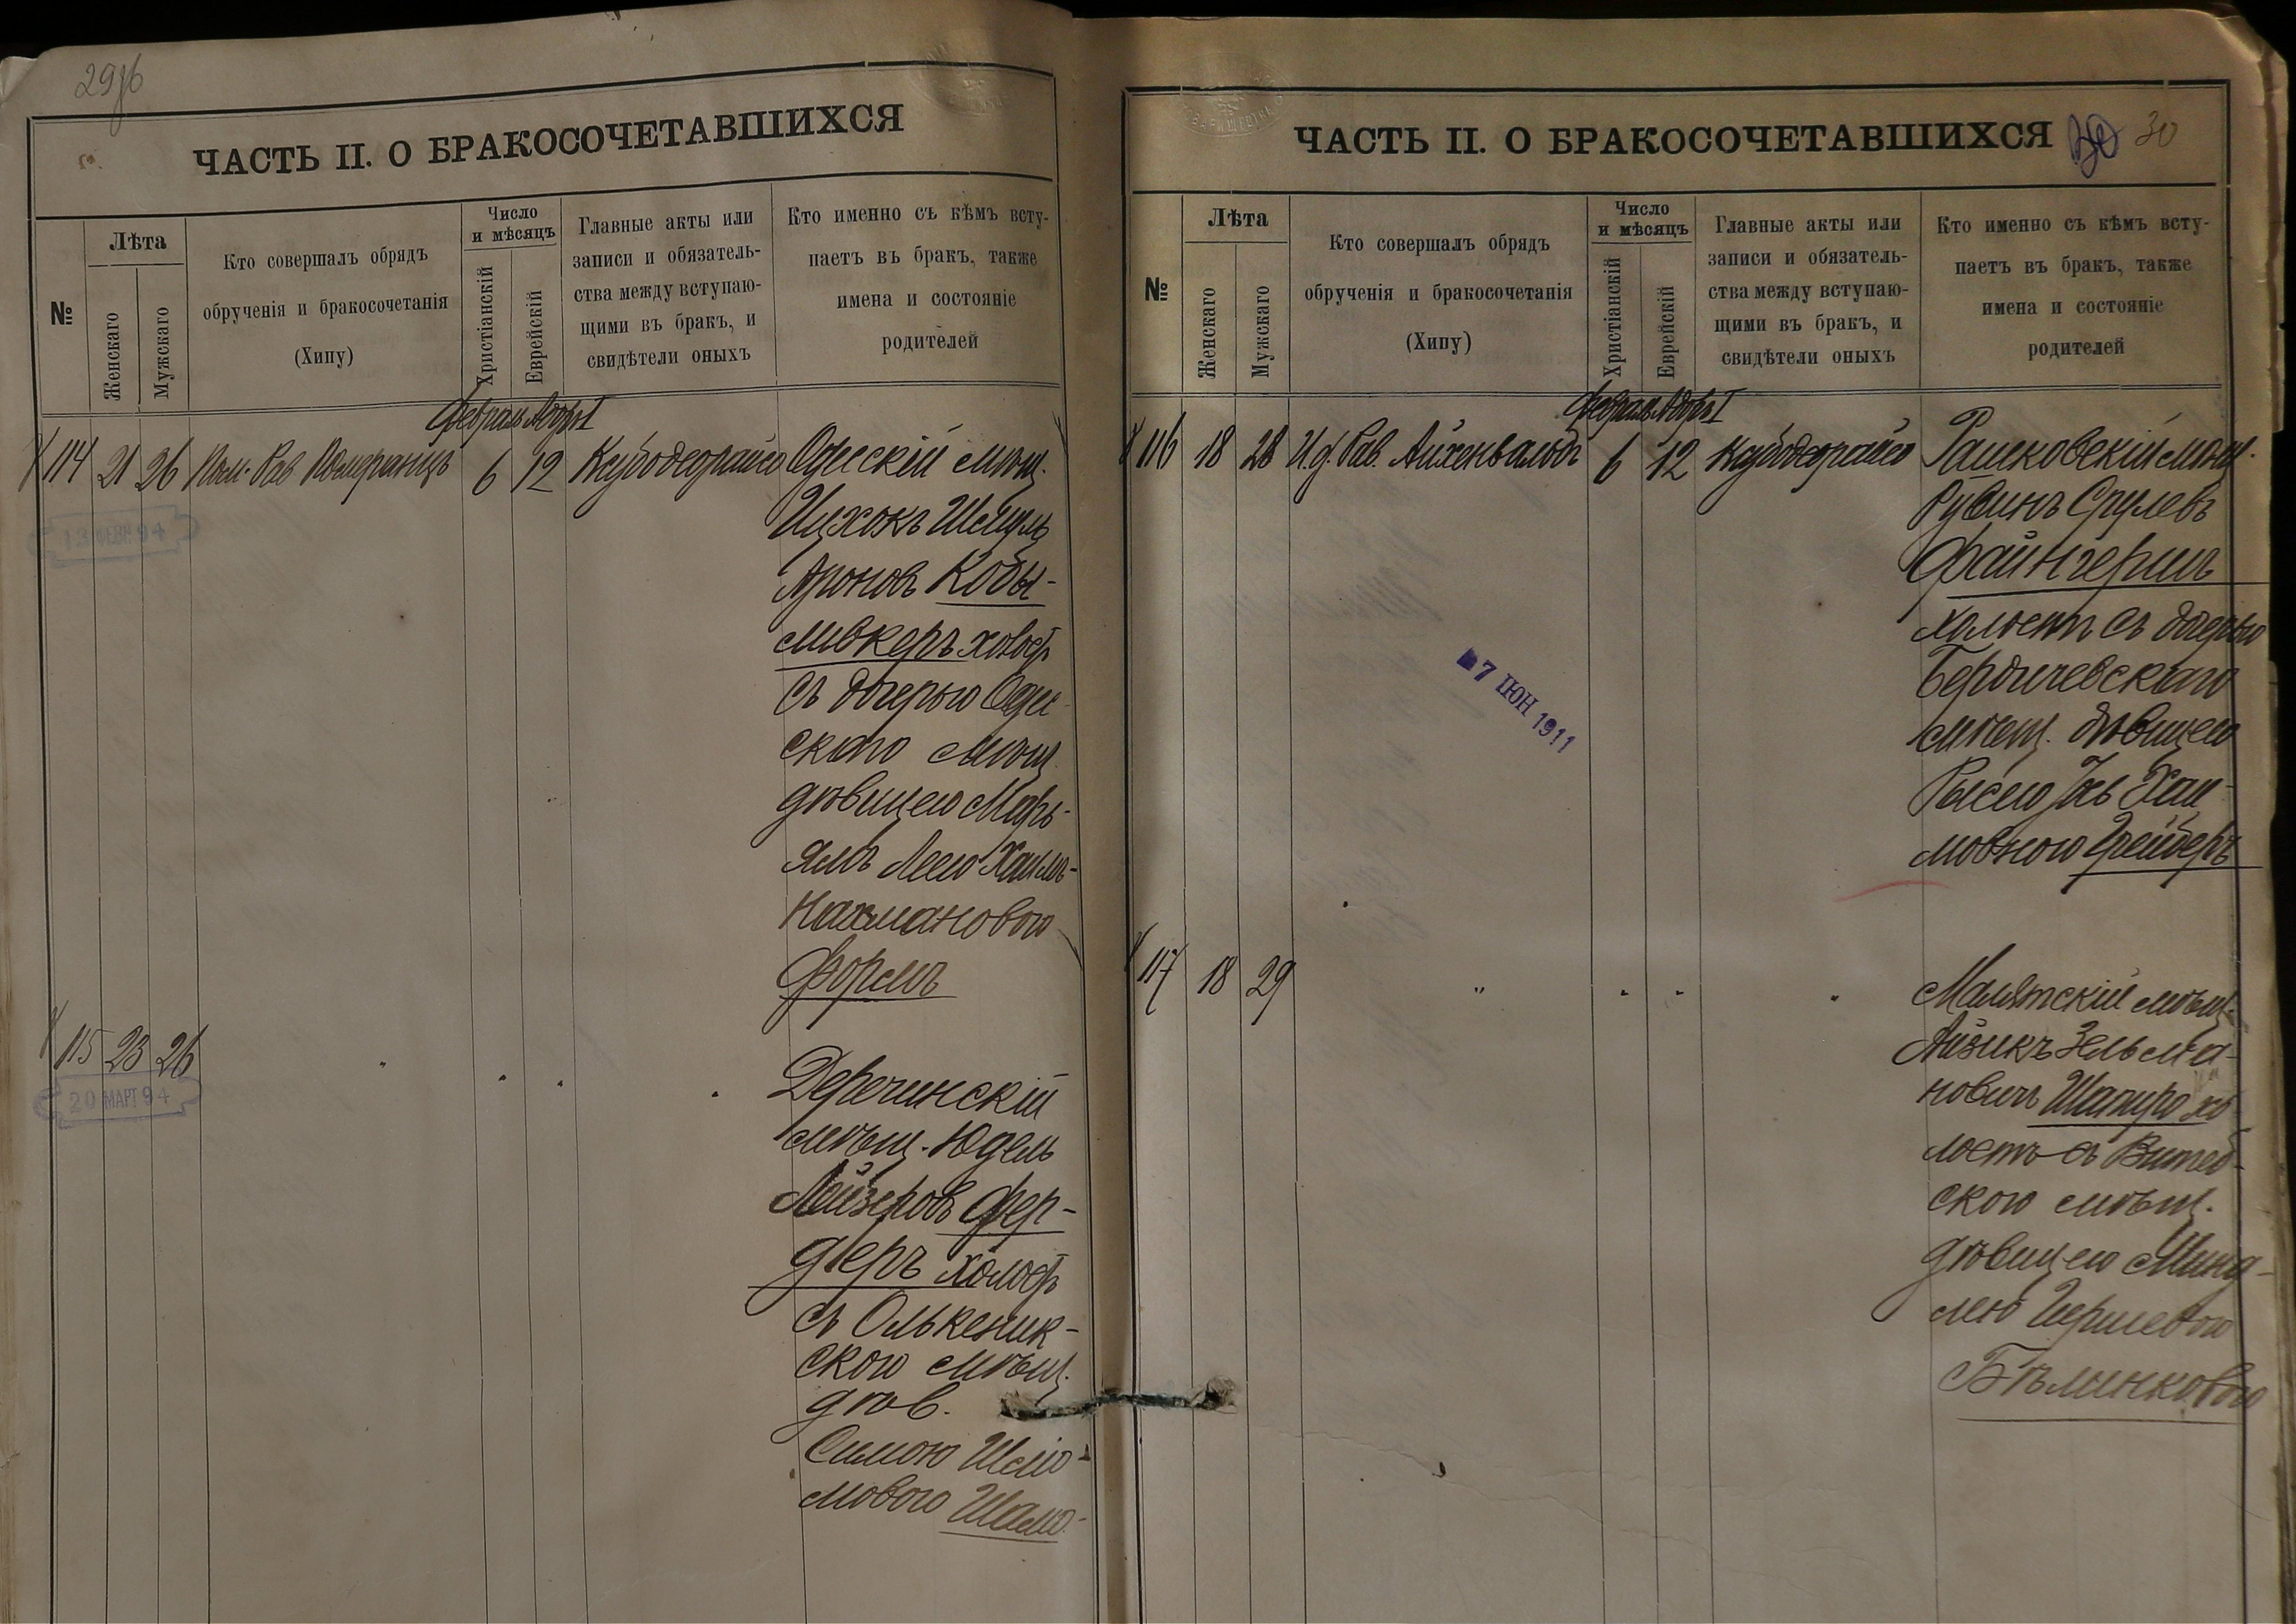 29
ЧАСТЬ II. О БРАКОСОЧЕТАВШИХСЯ
№
Лѣта
Женскаго
Мужскаго
Кто совершалъ обрядъ
обрученія и бракосочетанія
(Хипу)
Число
и мѣсяцъ
Христіанскій
Еврейскій
Главные акты или
записи и обязатель-
ства между вступаю-
щими въ бракъ, и
свидѣтели оныхъ
Кто именно съ кѣмъ всту-
паетъ въ бракъ, также
имена и состояніе
родителей
Февраль Адоръ I
114 21 26 Пом. Рав Померанцъ 6 12 Ксубодеорайсо Одесскій мѣщ.
Ицхокъ Шмуль
Ароновъ Кобы-
ливкеръ холост
съ дочерью Одес
скаго мѣщ.
дѣвицею Марь-
ямъ Леею Хаимъ-
Нахмановою
Форемъ
13 ФЕВР 94
115 23 26 " " " "
Деречинскій
мѣщ. Юдель
Лейзеровъ Фер-
деръ холост
съ Олькеник-
скою мѣщ.
дѣв.
Симою Шмо-
мовою Шамо-
20 МАРТ 94
ЧАСТЬ II. О БРАКОСОЧЕТАВШИХСЯ
30
№
Лѣта
Женскаго
Мужскаго
Кто совершалъ обрядъ
обрученія и бракосочетанія
(Хипу)
Число
и мѣсяцъ
Христіанскій
Еврейскій
Главные акты или
записи и обязатель-
ства между вступаю-
щими въ бракъ, и
свидѣтели оныхъ
Кто именно съ кѣмъ всту-
паетъ въ бракъ, также
имена и состояніе
родителей
Февраль Адоръ I
116 18 28 И.д. Рав. Айхенвальдъ 6 12 Ксубодеорайсо Рашковскій мѣщ.
Рувинъ Срулевъ
Файнгершъ
холостъ съ дочерью
Бердичевскаго
мѣщ. дѣвицею
Рысею Хаи-
мовною Грейберъ
7 ІЮН 1911
117 18 29 " " " "
Малятскій мѣщ.
Айзикъ Зельма-
новичъ Шапиро хо
лостъ съ Витеб-
скою мѣщ.
дѣвицею Минд-
лею Гершевою
Бѣлинковою